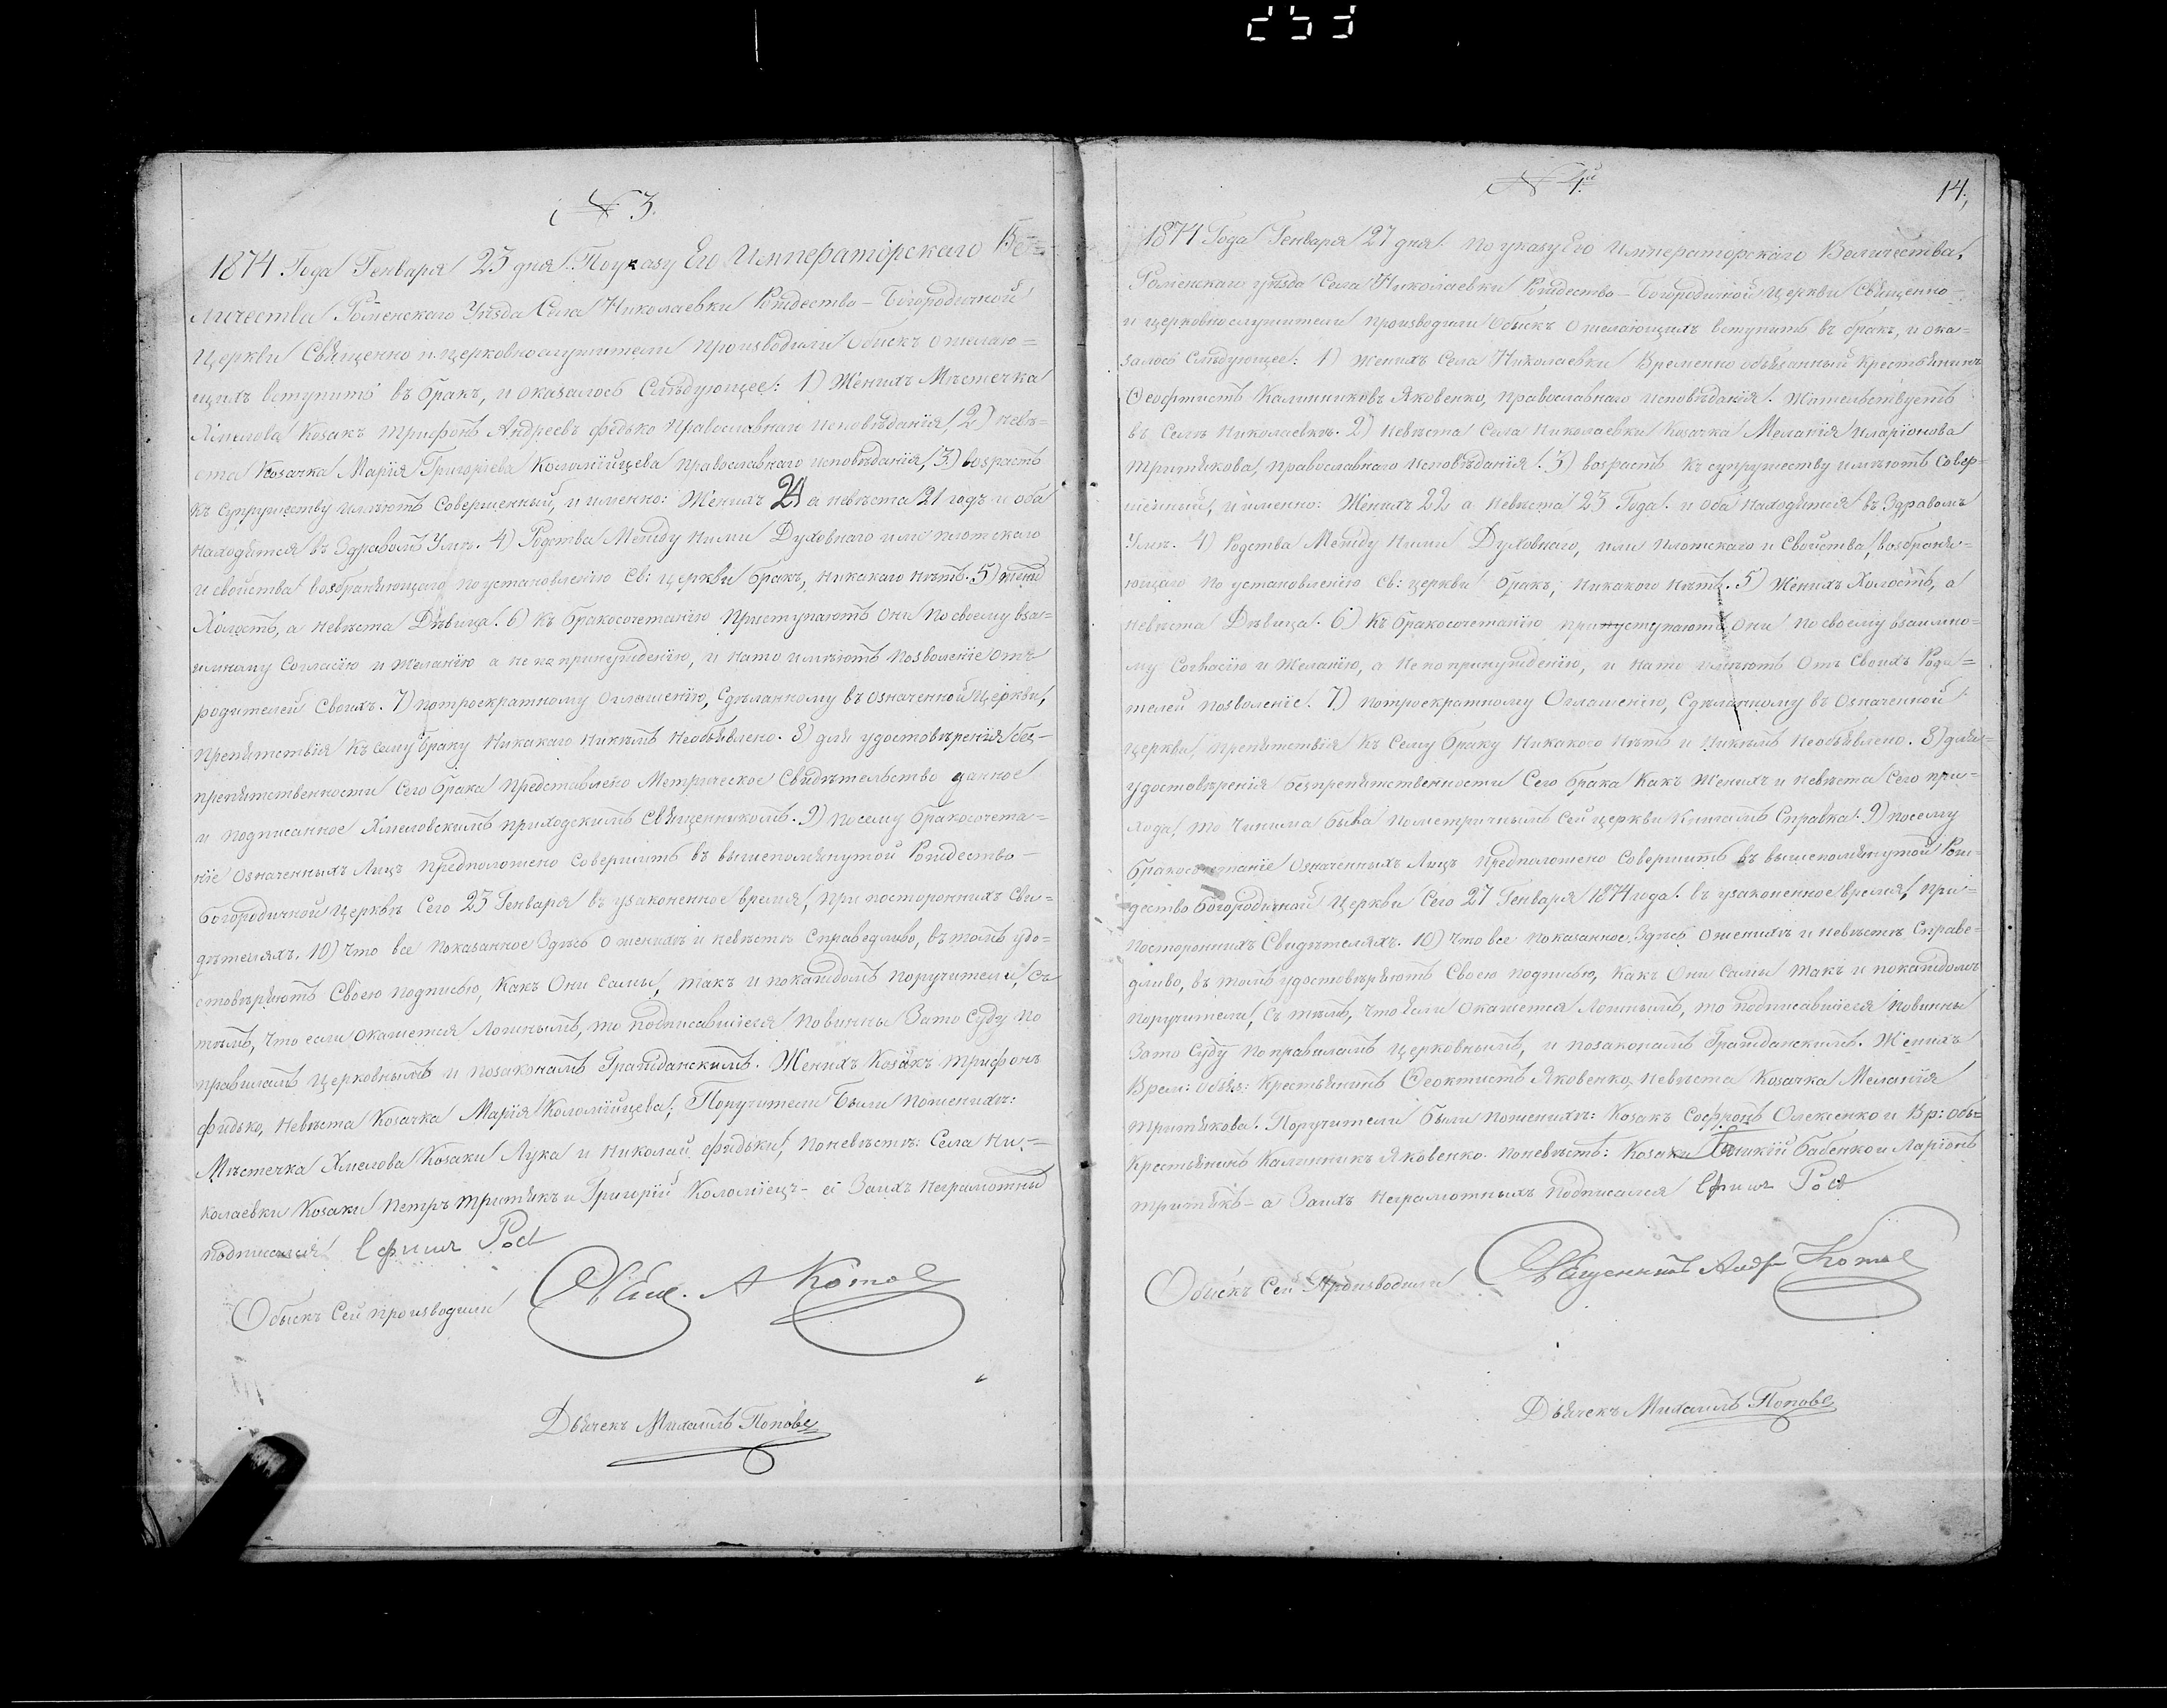 № 3.
1874 Года Генваря 23 дня. По указу Его Императорскаго Ве=
личества Роменскаго Уѣзда Села Николаевки Рождество-Богородичной
Церкви Священно и церковнослужители производили Обыскъ о желаю=
щихъ вступить въ бракъ, и оказалось Слѣдующее: 1) Женихъ Мѣстечка
Хмелова Козакъ Трифонъ Андреевъ Федько Православнаго исповѣданія, 2) невѣ=
ста Козачка Марія Григорьева Коломійцева православнаго исповѣданія, 3) возрастъ
къ супружеству имѣютъ Совершенный, и именно: Женихъ 24 а невѣста 21 годъ и оба
находятся въ Здравомъ Умѣ. 4) Родства Между Ними Духовнаго или плотскаго
и свойства возбраняющаго по установленію Св: церкви бракъ, никакаго нѣтъ. 5) жени
Холостъ, а невѣста Дѣвица. 6) Къ бракосочетанію Приступаютъ Они По своему вза=
имному Согласію и желанію а не по принужденію, и на то имѣютъ позволеніе отъ
родителей Своихъ. 7) по троекратному Оглашенію, Сдѣланному въ означенной Церкви,
Препятствія къ сему браку Никакаго Никѣмъ Необъявлено. 8) для удостовѣренія без-
препятственности Сего брака Представлено Метрическое Свидѣтельство данное
и подписанное Хмеловскимъ приходскимъ Священникомъ. 9) Посему бракосочета=
ніе означенныхъ Лицъ предположено Совершить въ вышепомянутой Рождество-
Богородичной Церквѣ Сего 23 Генваря въ узаконенное время, при постороннихъ Сви=
дѣтеляхъ. 10) Что все показанное Здѣсь о женихѣ и невѣстѣ Справедливо, въ томъ удо=
стовѣряютъ Своею подписью, Какъ Они Сами, такъ и по каждомъ поручители, Съ
тѣмъ, Что если Окажется Ложнымъ, то подписавшіеся Повинны За то Суду По
правиламъ Церковнымъ и по законамъ Гражданскимъ. Женихъ Козакъ Трифонъ
Федько, Невѣста Козачка Марія Коломійцева; Поручители Были По женихѣ:
Мѣстечка Хмелова Козаки Лука и Николай Федьки, По невѣстѣ: Села Ни=
колаевки Козаки Петръ Притыкъ и Григорій Коломіецъ- а За ихъ неграмотных
подписался
Обыскъ Сей производили Свящ. А Котов
Дьячекъ Михаилъ Поповъ
№ 4й
14.
1874 Года Генваря 27 дня. По указу Его Императорскаго Величества,
Роменскаго уѣзда Села Николаевки Рождество-Богородичной Церкви Священно-
и церковнослужители производили Обыскъ о желающихъ вступить въ бракъ, и ока=
залось Слѣдующее: 1) Женихъ Села Николаевки Временно обязанный крестьянинъ
Ѳеоктистъ Калинниковъ Яковенко, Православнаго исповѣданія. Жительствуетъ
въ Селѣ Николаевкѣ. 2) Невѣста Села Николаевки Козачка Меланія Иларіонова
Притыкова, православнаго исповѣданія. 3) возрастъ къ супружеству имѣютъ Совер=
шенный, и именно: Женихъ 22 а невѣста 23 Года. и Оба находятся въ Здравомъ
Умѣ. 4) Родства Между Ними Духовнаго, или плотскаго и Свойства, возбраня=
ющаго по установленію Св: церкви бракъ, Никакого Нѣтъ. 5) Женихъ Холостъ, а
невѣста Дѣвица. 6) Къ бракосочетанію приступаютъ Они по своему взаимно=
му Согласію и желанію, а не по принужденію, и на то имѣютъ Отъ Своихъ Роди=
телей позволеніе. 7) По троекратному Оглашенію, Сдѣланному въ означенной
Церкви, Препятствія къ Сему браку Никакого Нѣтъ и Никѣмъ Необъявлено. 8) для=
удостовѣренія безпрепятственности Сего брака Какъ Женихъ и невѣста Сего при=
хода, то Чинима была По метричнымъ Сей церкви Книгамъ Справка. 9) посему
бракосочетаніе Означенныхъ Лицъ Предположено Совершить въ вышепомянутой Рож=
дество Богородичной Церкви Сего 27 Генваря 1874 года. въ узаконенное время, при=
постороннихъ Свидѣтеляхъ. 10) Что все показанное Здѣсь о женихѣ и невѣстѣ Справе=
дливо, въ томъ удостовѣряютъ Своею подписью, Какъ Они Сами такъ и по каждомъ
поручители, Съ тѣмъ, Что если Окажется Ложнымъ, то подписавшіеся Повинны
За то Суду По правиламъ Церковнымъ, и по законамъ Гражданскимъ. Женихъ
Врем: обяз: Крестьянинъ Ѳеоктистъ Яковенко, невѣста Козачка Меланія
Притыкова. Поручители были по женихѣ: Козакъ Софронъ Олексенко и Вр: обя=
Крестьянинъ Калинникъ Яковенко. по невѣстѣ: Козаки Бабенко и Ларіонъ
Притыкъ- а За ихъ Неграмотныхъ Подписался
Обыскъ Сей Производили Священникъ Андр Котов
Дьячекъ Михаилъ Поповъ